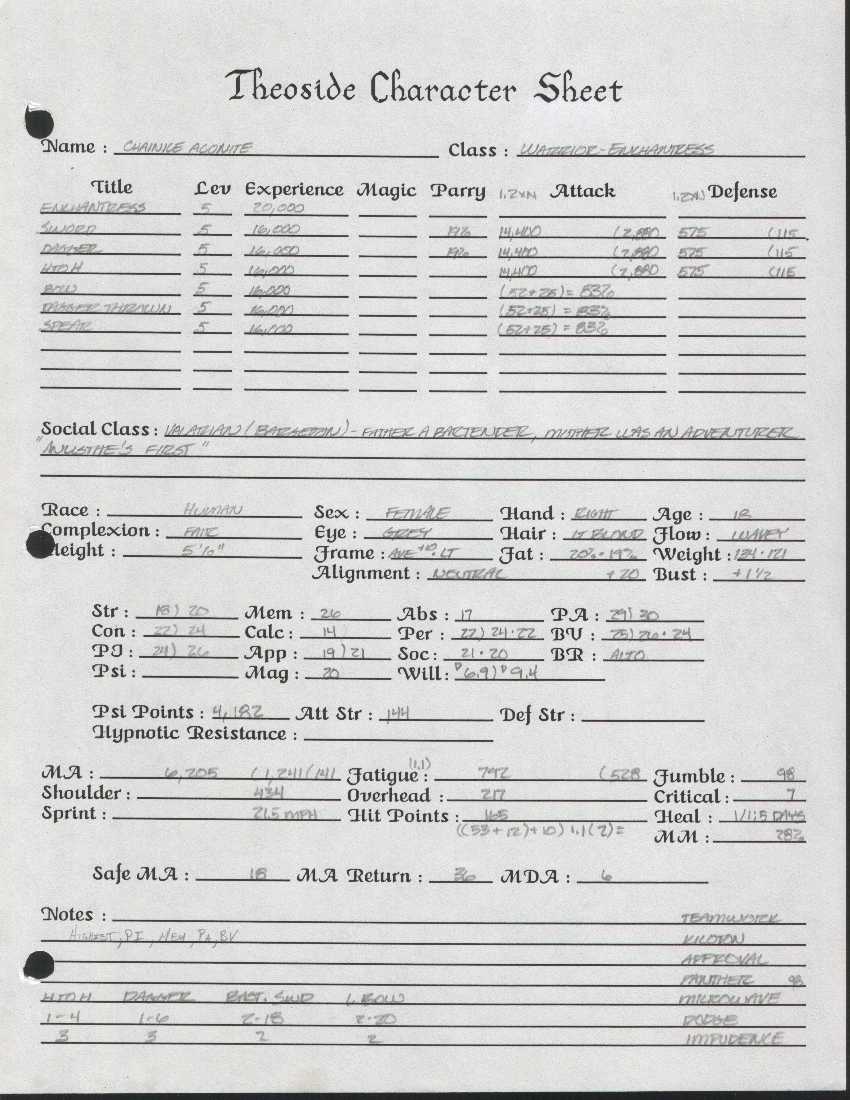 Theoside Character Sheet
Name : CHAINILE ACONITE Class : WARRIOR-ENCHANTRESS
Title Lev Experience Magic Parry 1.2xN Attack 1.2xN Defense
ENCHANTRESS 5 20,000
SWORD 5 16,000 19% 14,400 (2,880 575 (115
DAGGER 5 16,000 19% 14,400 (2,880 575 (115
HTOH 5 16,000 14,400 (2,880 575 (115
BOW 5 16,000 (52+25)= 83%
DAGGER THROWN 5 16,000 (52+25) = 83%
SPEAR 5 16,000 (52+25) = 83%
Social Class : VALARIAN - FATHER A BARTENDER, MOTHER WAS AN ADVENTURER
FIRST"
Race : HUMAN Sex : FEMALE Hand : RIGHT Age : 18
Complexion : FAIR Eye : GREY Hair : LT BLOND Flow : WAVEY
Height : 5'10" Frame : AVE +10 LT Fat : 20% · 19% Weight : 134 · 121
Alignment : NEUTRAL +20 Bust : +1 1/2
Str : 18) 20 Mem : 26 Abs : 17 PA : 29) 30
Con : 22) 24 Calc : 14 Per : 22) 24 · 22 BV : 25) 26 · 24
PI : 24) 26 App : 19) 21 Soc : 21 · 20 BR : ALTO
Psi : Mag : 20 Will : 6.9) 9.4
Psi Points : 4,182 Att Str : 144 Def Str :
Hypnotic Resistance :
(1.1)
MA : 6,205 (1,241/141 Fatigue : 792 (528 Fumble : 98
Shoulder : 434 Overhead : 217 Critical : 7
Sprint : 21.5 MPH Hit Points : 165 Heal : 1/1.5 DAYS
((53+12)+10) 1.1(2)= MM : 28%
Safe MA : 18 MA Return : 36 MDA : 6
Notes : TEAMWORK
HIGHEST, PI, MEM, PA, BV KILOTON
APPROVAL
PANTHER 98
HTOH DAGGER BAST. SWD L. BOW MICROWAVE
1-4 1-6 2-18 2-20 DODGE
3 3 2 2 IMPUDENCE